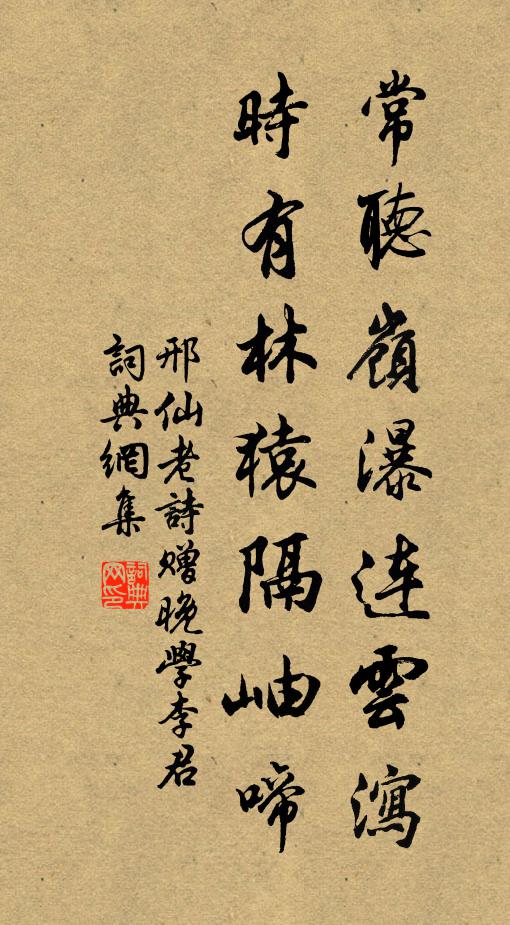 常聽嶺瀑連雲瀉
時有林猿隔岫啼
邢仙老詩贈晚學李君
詞典網集
詞典網印